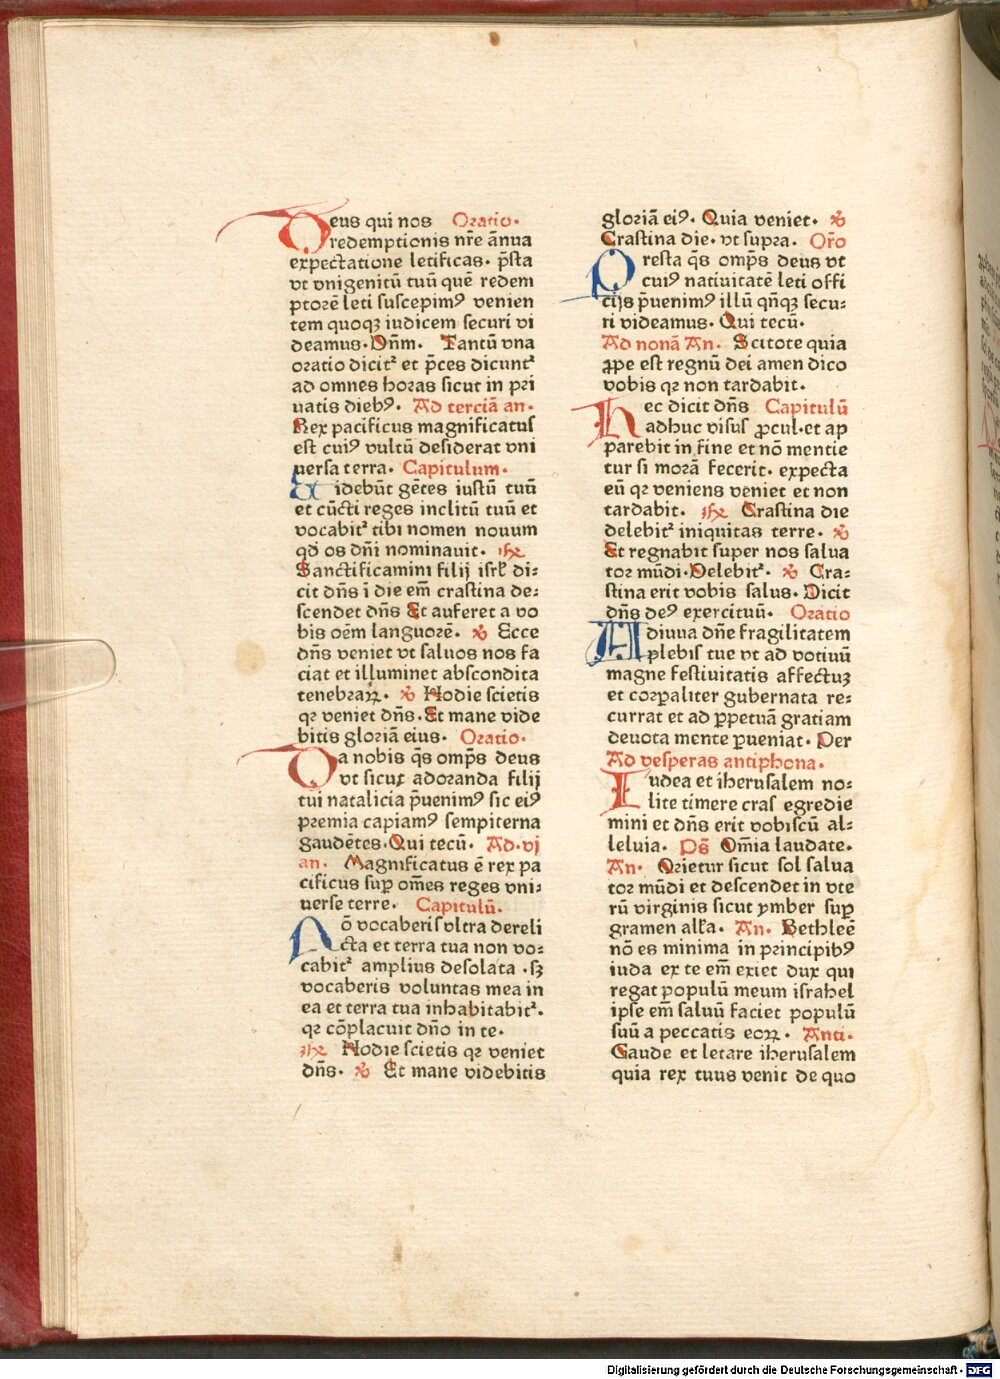 Deus qui nos Oratio.
redemptionis nr̃e ãnua
expectatione letificas. p̃sta
vt vnigenitũ tuũ quẽ redem
ptorẽ leti suscepimꝰ venien
tem quoqꝫ iudicem securi vi
deamus. Dñm. Tantũ vna
oratio dicitᷣ et p̃ces dicuntᷣ
ad omnes horas sicut in pri
uatis diebꝰ. Ad terciã an.
Rex pacificus magnificatus
est cuiꝰ vultũ desiderat vni
uersa terra. Capitulum.
Uidebũt gẽtes iustũ tuũ
et cũcti reges inclitũ tuũ et
vocabitᷣ tibi nomen nouum
qd̛ os dñi nominauit. ꝶ
Sanctificamini filij isrl̃ di⸗
cit dñs ĩ die em̃ crastina de⸗
scendet dñs Et auferet a vo
bis oẽm languorẽ. ℣ Ecce
dñs veniet vt saluos nos fa
ciat et illuminet abscondita
tenebraꝝ. ℣ Hodie scietis
qꝛ veniet dñs. Et mane vide
bitis gloriã eius. Oratio.
Da nobis q̃s omp̃s deus
vt sicut adoranda filij
tui natalicia p̃uenimꝰ sic eiꝰ
premia capiamꝰ sempiterna
gaudẽtes. Qui tecũ. Ad. vj
an. Magnificatus ẽ rex pa
cificus suꝑ om̃es reges vni⸗
uerse terre. Capitulũ.
Nõ vocaberis vltra dereli
cta et terra tua non vo⸗
cabitᷣ amplius desolata. sꝫ
vocaberis voluntas mea in
ea et terra tua inhabitabitᷣ.
qꝛ cõplacuit dño in te.
ꝶ Hodie scietis qꝛ veniet
dñs. ℣ Et mane videbitis
gloriã eiꝰ. Quia veniet. ℣
Crastina die. vt supra. Oro̅
Presta q̃s omp̃s deus vt
cuiꝰ natiuitatẽ leti offi
cijs p̃uenimꝰ illũ qñqꝫ secu⸗
ri videamus. Qui tecũ.
Ad nonã An. Scitote quia
ꝓpe est regnũ dei amen dico
vobis qꝛ non tardabit.
Hec dicit dñs Capitulũ
adhuc visus ꝓcul. et ap
parebit in fine et nõ mentie
tur si morã fecerit. expecta
eũ qꝛ veniens veniet et non
tardabit. ꝶ Crastina die
delebitᷣ iniquitas terre. ℣
Et regnabit super nos salua
tor mũdi. Delebitᷣ. ℣ Cra⸗
stina erit vobis salus. Dicit
dñs deꝰ exercituũ. Oratio
Adiuua dñe fragilitatem
plebis tue vt ad votiuũ
magne festiuitatis affectuꝫ
et corꝑaliter gubernata re⸗
currat et ad ꝑpetuã gratiam
deuota mente ꝑueniat. Per
Ad vesperas antiphona.
Iudea et iherusalem no⸗
lite timere cras egredie
mini et dñs erit vobiscũ al⸗
leluia. Ps̃ Om̃ia laudate.
An. Orietur sicut sol salua
tor mũdi et descendet in vte
rũ virginis sicut ymber suꝑ
gramen alľa. An. Bethleẽ
nõ es minima in principibꝰ
iuda ex te em̃ exiet dux qui
regat populũ meum israhel
ipse em̃ saluũ faciet populũ
suũ a peccatis eoꝝ. Anti.
Gaude et letare iherusalem
quia rex tuus venit de quo
Digitalisierung gefördert durch die Deutsche Forschungsgemeinschaft - DFG